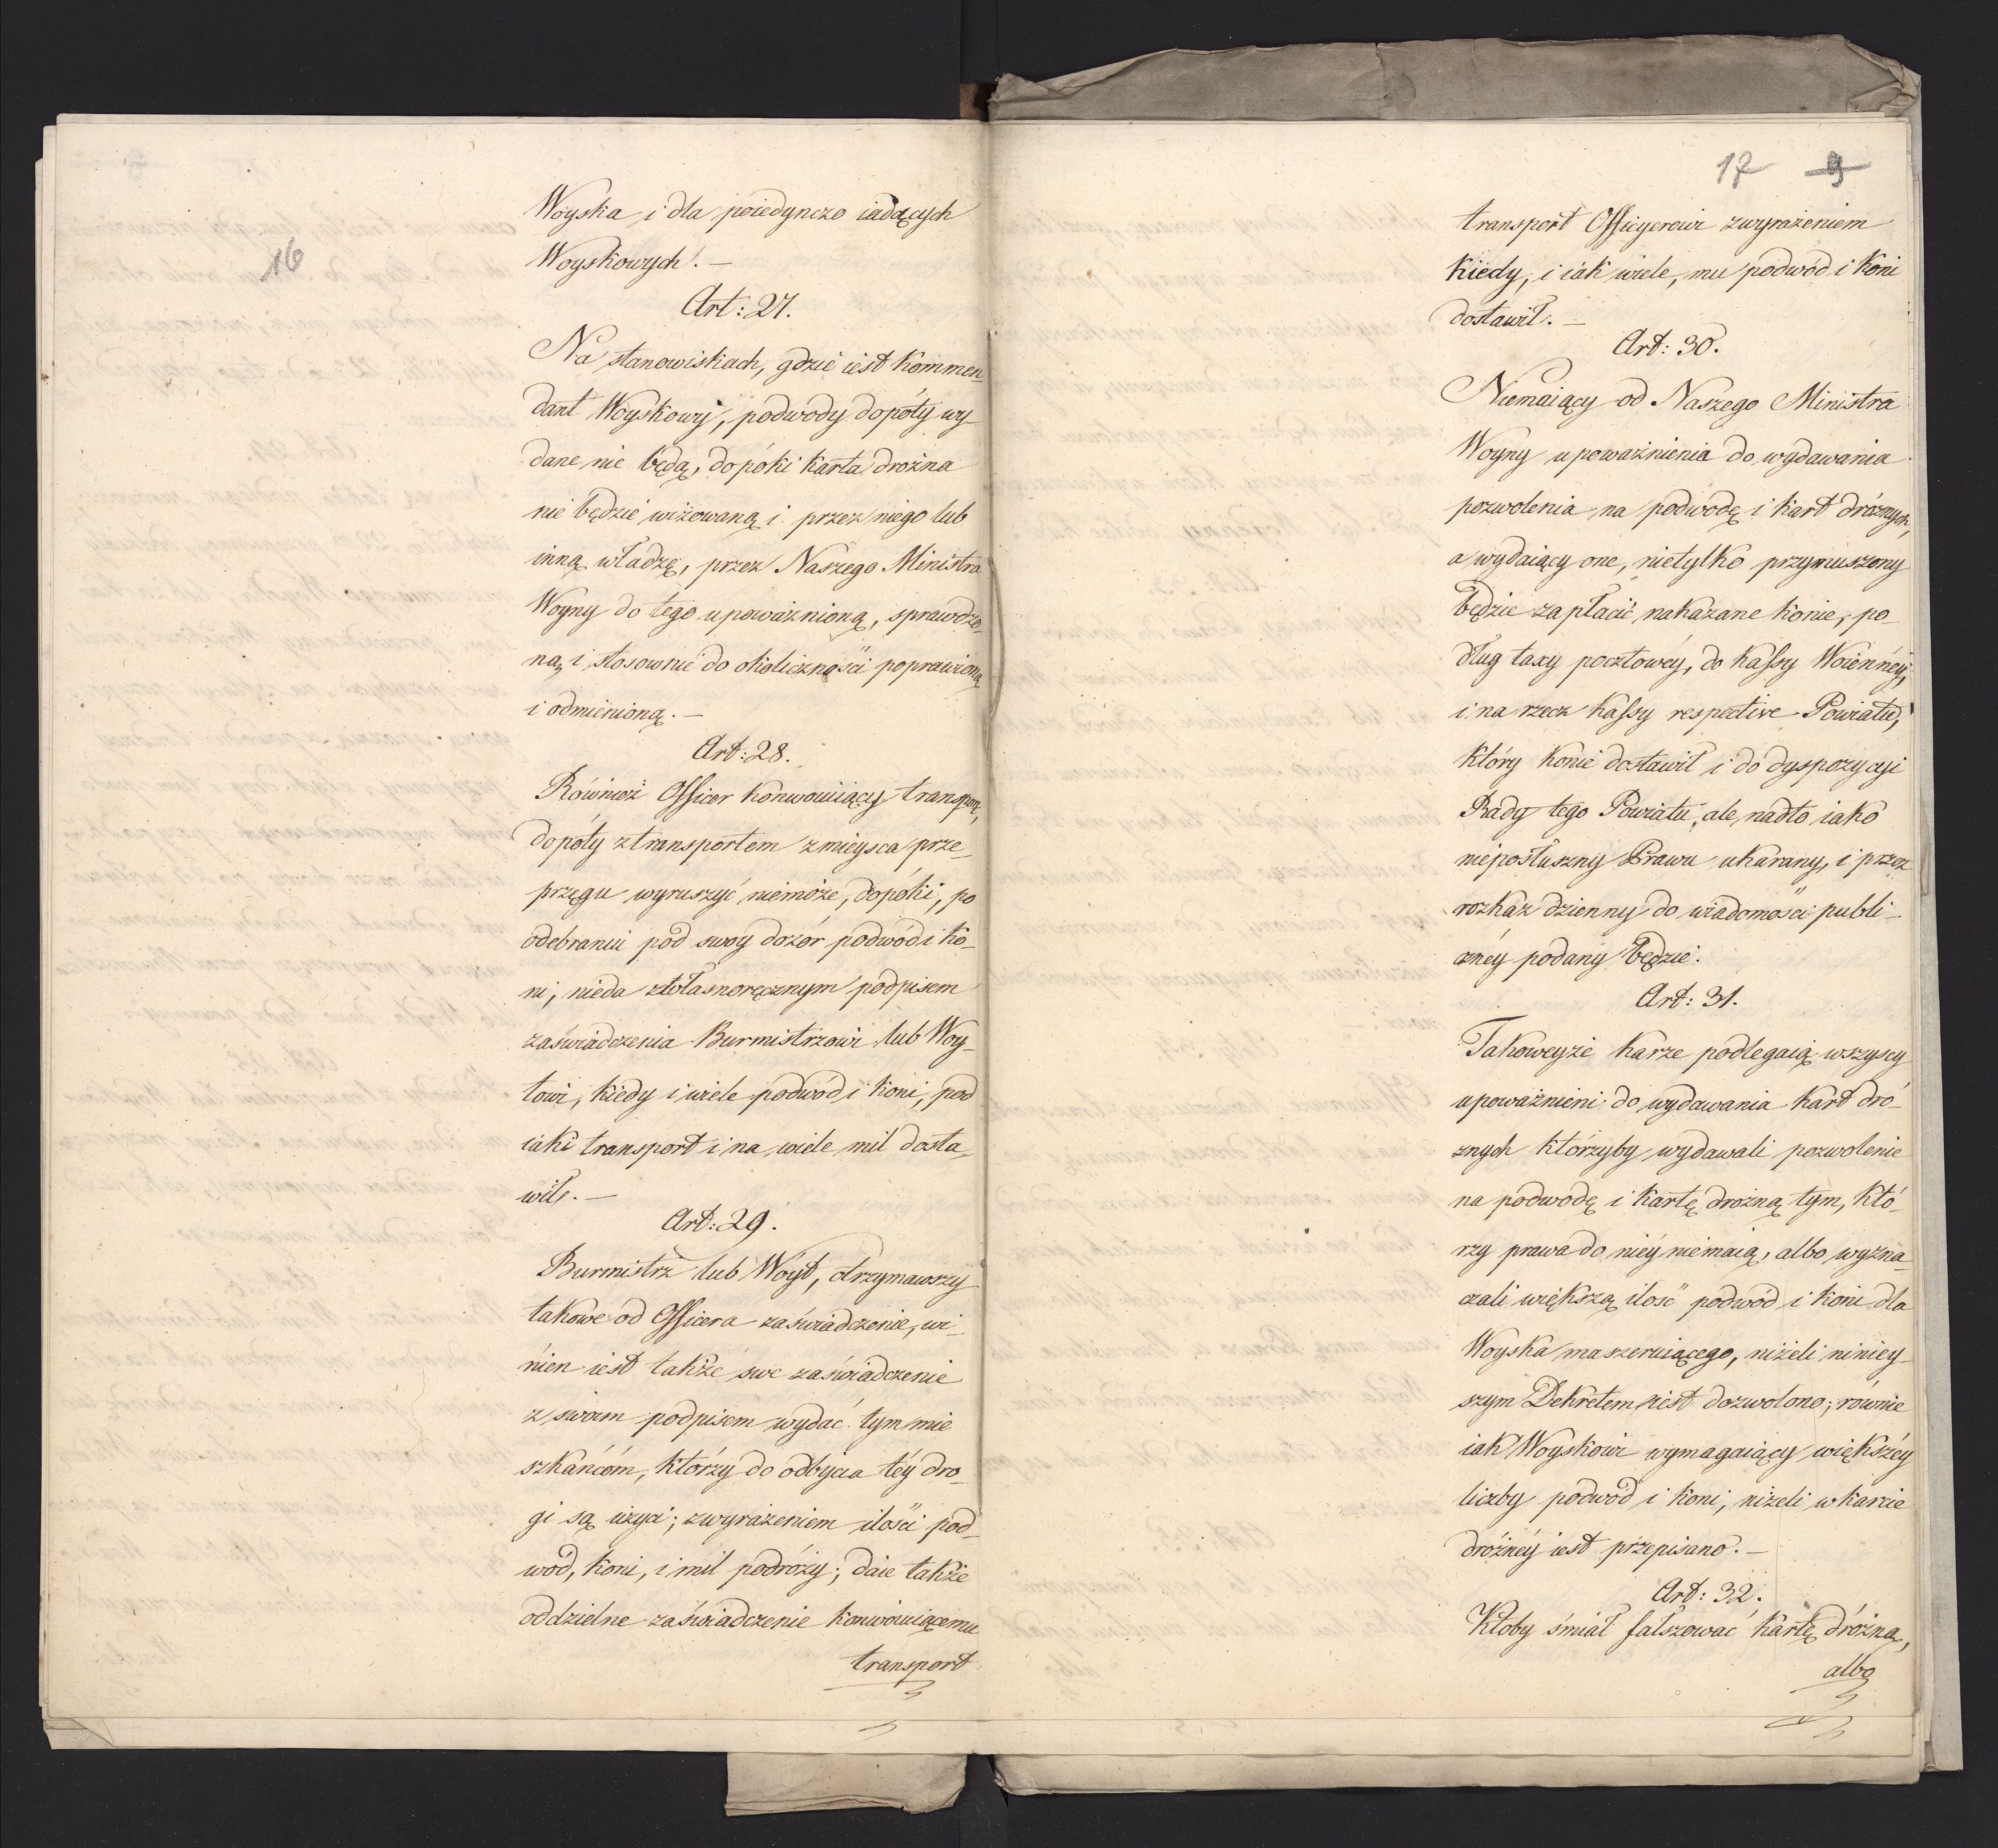 16
Woyska i dla poiedynczo iadących
Woyskowych. —
Art: 27.
Na stanowiskach, gdzie iest Kommen-
dant Woyskowy, podwody dopóty wy-
dane nie będą, dopóki karta drożna
nie będzie wizowaną i przez niego lub
inną władzę, przez Naszego Ministra
Woyny do tego upoważnioną, sprawdzo-
ną, i stosownie do okoliczności poprawioną
i odmienioną. —
Art: 28.
Również Officer konwoiuiący transport,
dopóty z transportem z mieysca prze-
przęgu wyruszyć niemoże, dopóki, po
odebraniu pod swoy dozór podwód i ko-
ni, nieda własnoręcznym podpisem
zaświadczenia Burmistrzowi lub Woy-
towi, kiedy i wiele podwód i koni, pod
iaki transport i na wiele mil dosta-
wił. —
Art: 29.
Burmistrz lub Woyt, otrzymawszy
takowe od Officera zaświadczenie, wi-
nien iest także swe zaświadczenie
z swoim podpisem wydać tym mie
szkańcóm, którzy do odbycia téy dro-
gi są użyci; z wyrażeniem ilości pod-
wód, koni, i mil podróży; daie także
oddzielne zaświadczenie konwoiuiącemu
transport
17 9
transport Officyerowi z wyrażeniem
kiedy, i iak wiele, mu podwód i koni
dostawił. —
Art: 30.
Niemaiący od Naszego Ministra
Woyny upoważnienia do wydawania
pozwolenia na podwodę i kart dróżnych,
a wydaiący one, nietylko przymuszony
będzie zapłacić nakazane konie, po-
dług taxy pocztowéy, do kassy Woiennéy,
i na rzecz kassy respective Powiatu,
który konie dostawił i do dyspozycyi
Rady tego Powiatu, ale nadto iako
nieposłuszny Prawu ukarany, i przez
rozkaz dzienny do wiadomości publi-
cznéy podany będzie.
Art: 31.
Takoweyże karze podlegaią wszyscy
upoważnieni do wydawania kart dró-
żnych którzyby wydawali pozwolenie
na podwodę i kartę drożną tym, któ-
rzy prawa do niéy niemaią, albo wyzna-
czali większą ilość podwód i koni dla
Woyska maszeruiącego, niżeli niniey-
szym Dekretem iest dozwolono; równie
iak Woyskowi wymagaiący większéy
liczby podwód i koni, niżeli w karcie
dróżnéy iest przepisano. —
Art: 32.
Ktoby śmiał fałszować kartę dróżną,
albo